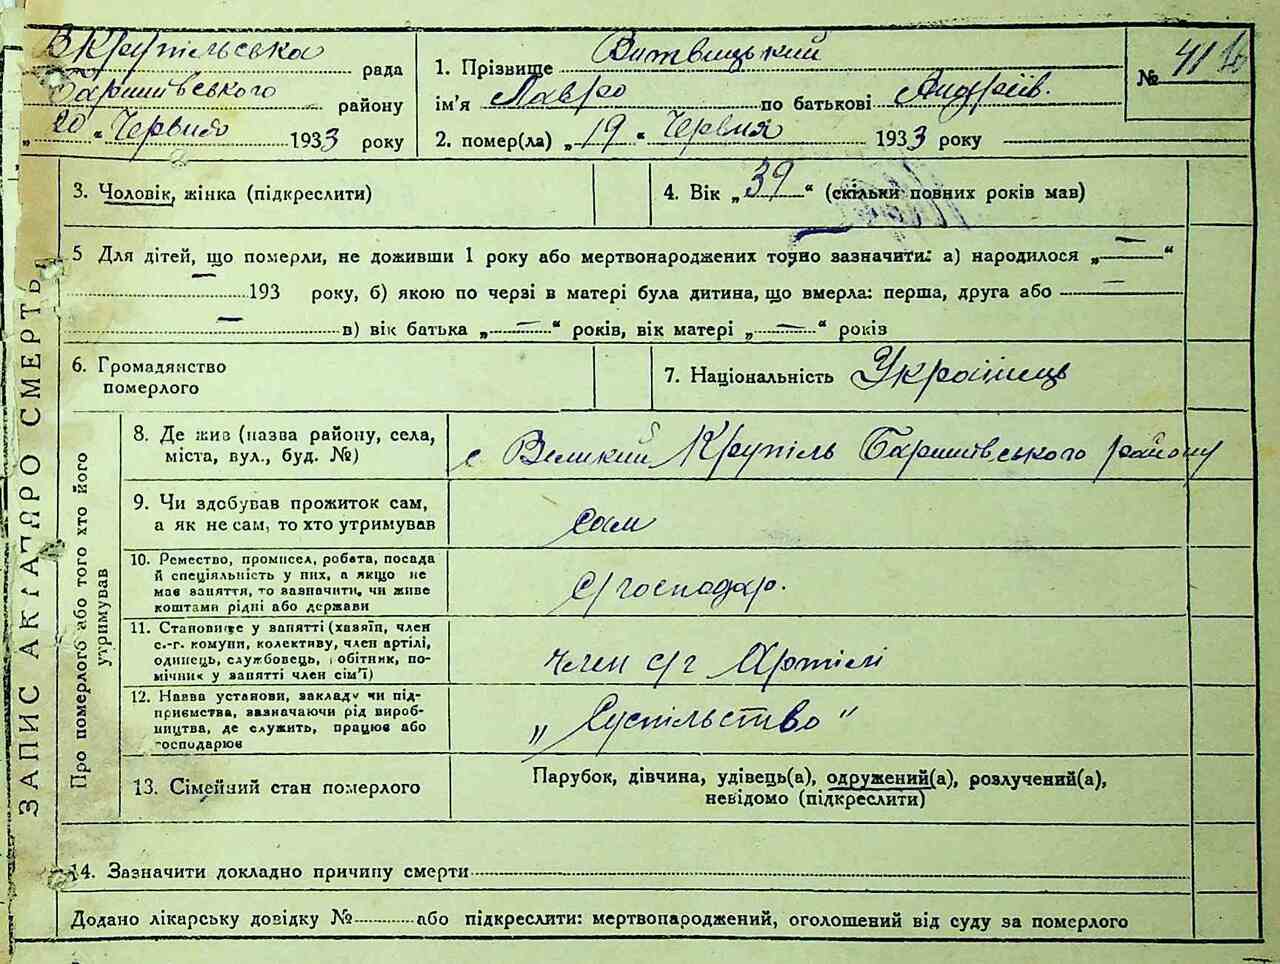 ЗАПИС АКТА ПРО СМЕРТЬ
В Крупільська рада
Баришівського району
„20“ Червня 1933 року
1. Прізвище Витвицький
ім'я Лавро по батькові Андріїв.
2. помер(ла) „19“ Червня 1933 року
№ 41
3. Чоловік, жінка (підкреслити)
4. Вік „39“ (скільки повних років мав)
5 Для дітей, що померли, не доживши 1 року або мертвонароджених точно зазначити: а) народилося „—“
— 193 року, б) якою по черзі в матері була дитина, що вмерла: перша, друга або —
— в) вік батька „—“ років, вік матері „—“ років
6. Громадянство
померлого
7. Національність Українець
Про померлого або того хто його
утримував
8. Де жив (назва району, села,
міста, вул., буд. №)
с Великий Крупіль Баришівського району
9. Чи здобував прожиток сам,
а як не сам, то хто утримував
сам
10. Ремество, промисел, робота, посада
й спеціяльність у них, а якщо не
мав заняття, то зазначити, чи живе
коштами рідні або держави
с/господар.
11. Становище у занятті (хазяїн, член
с.-г. комуни, колективу, член артілі,
одинець, службовець, робітник, по-
мічник у занятті член сім'ї)
член с/г Артілі
12. Назва установи, закладу чи під-
приємства, зазначаючи рід вироб-
ництва, де служить, працює або
господарює
„Суспільство“
13. Сімейний стан померлого
Парубок, дівчина, удівець(а), одружений(а), розлучений(а),
невідомо (підкреслити)
14. Зазначити докладно причину смерти
Додано лікарську довідку № або підкреслити: мертвонароджений, оголошений від суду за померлого